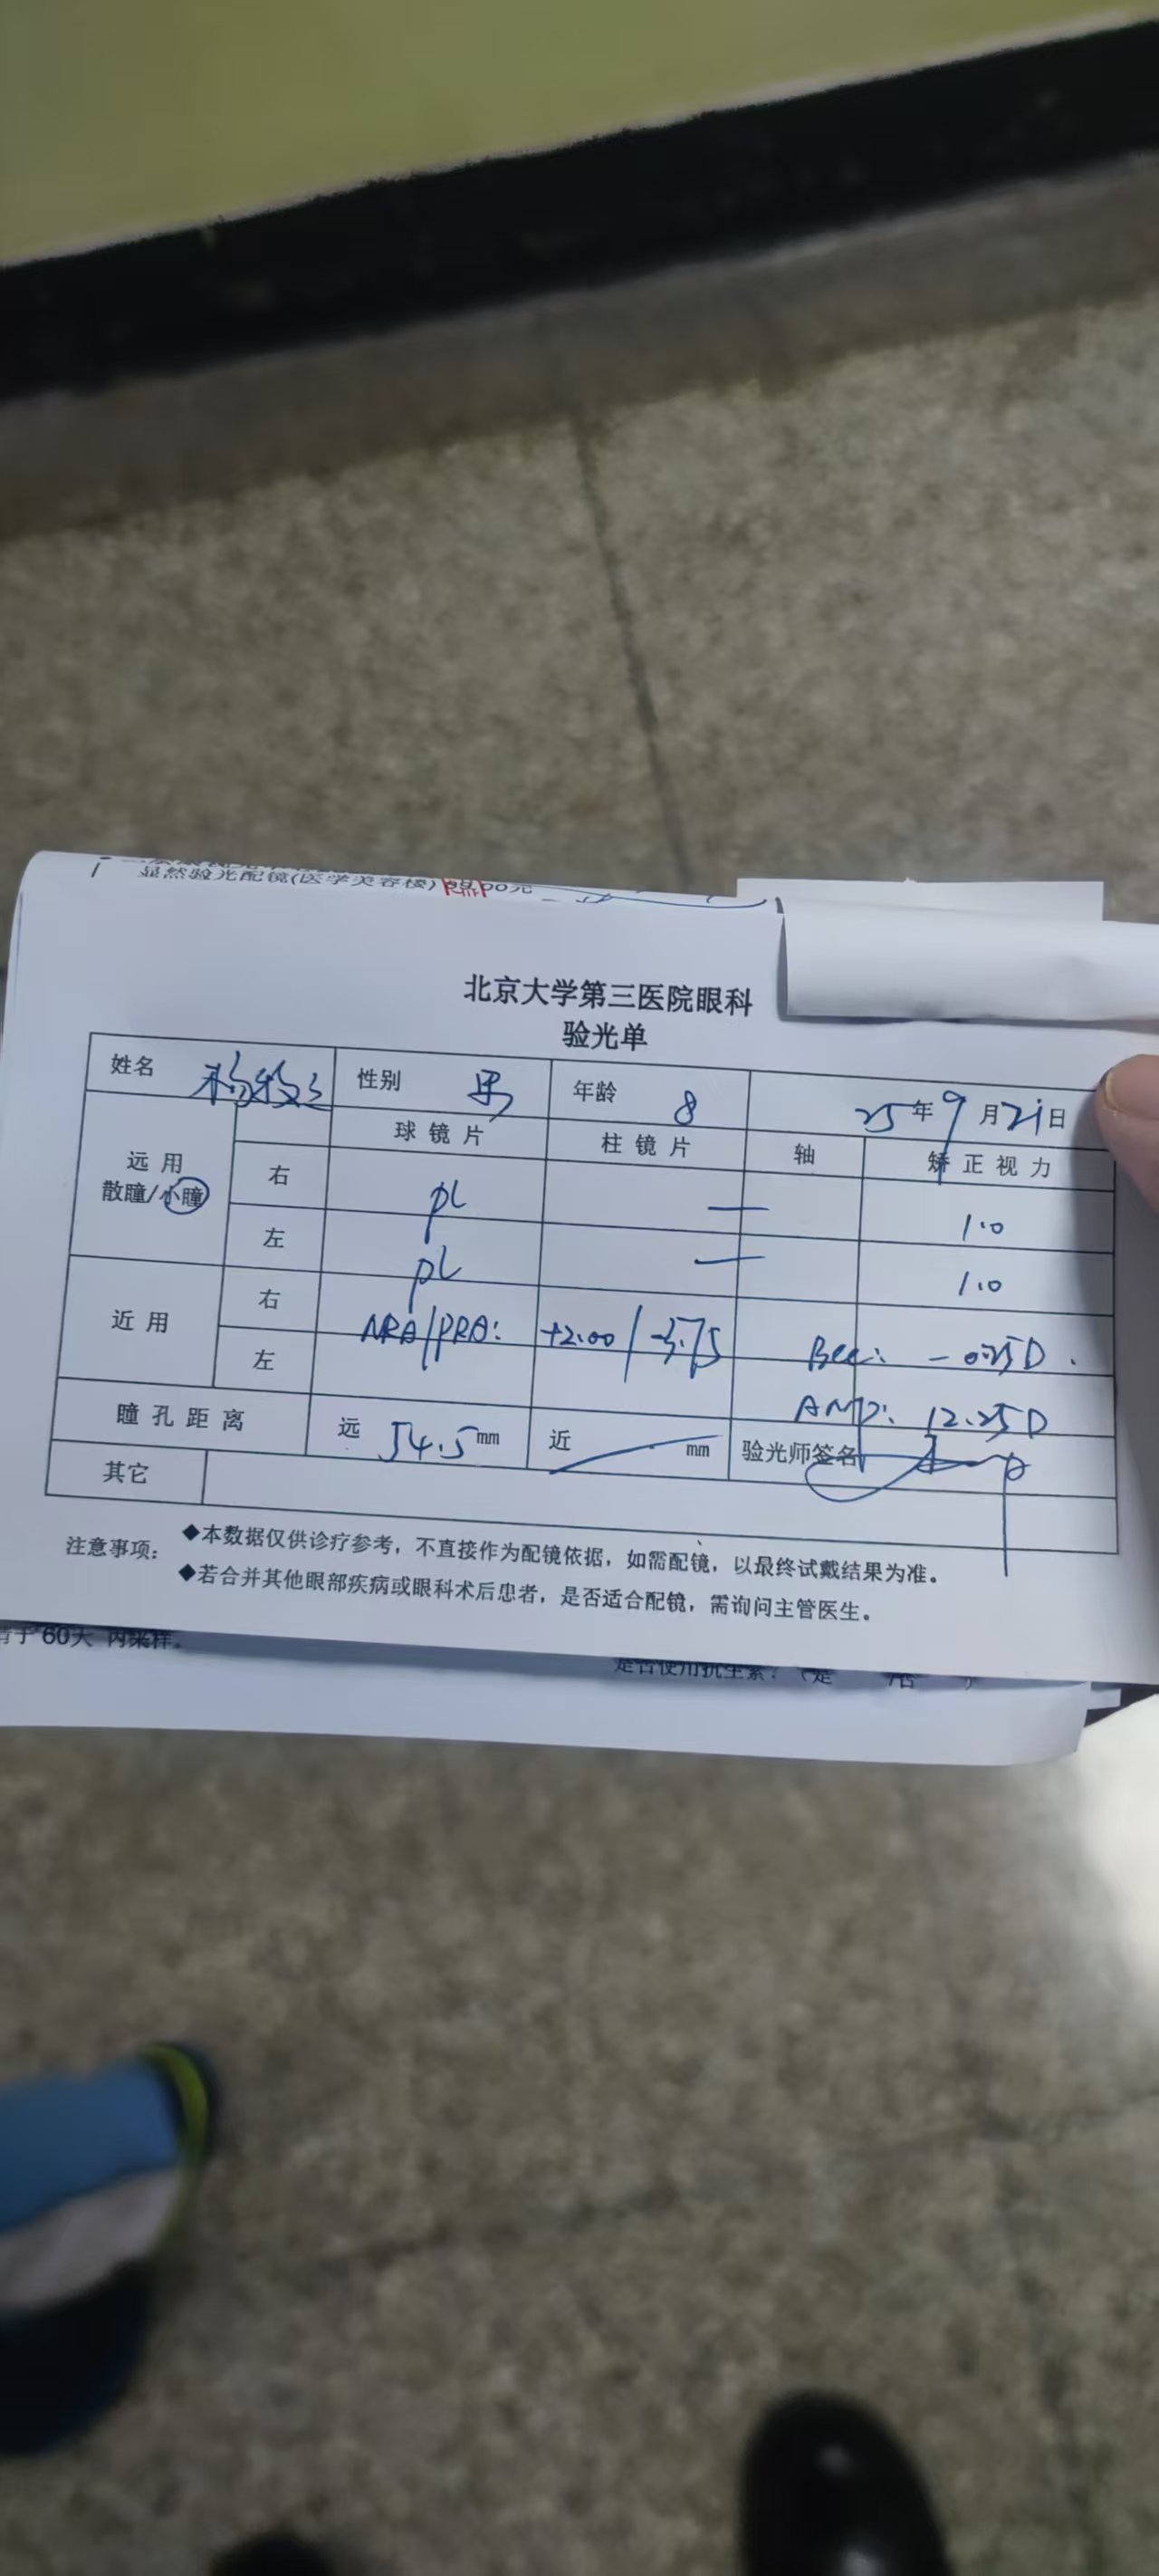 显然验光配镜(医学美容楼)
北京大学第三医院眼科
验光单
姓名 性别 男 年龄 8 25年9月21日
球镜片 柱镜片 轴 矫正视力
远用
散瞳/小瞳
右 pl — 1.0
左 pl — 1.0
近用 右
左
NRA/PRA: +2.00/-3.75 BCC: -0.25D.
AMP: 12.25D
瞳孔距离 远 54.5mm 近 mm 验光师签名
其它
注意事项: ◆本数据仅供诊疗参考，不直接作为配镜依据，如需配镜，以最终试戴结果为准。
◆若合并其他眼部疾病或眼科术后患者，是否适合配镜，需询问主管医生。
于60天 内采样。
是否使用抗生素？（是 /否 ）